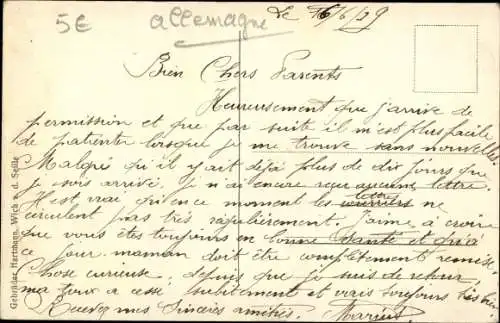 5€
allemagne
Le 16/6/29
Bien Chers Parents
Heureusement que j'arrive de
permission et que par suite il m'est plus facile
de patienter lorsque je me trouve sans nouvelles
Malgré qu'il y ait déjà plus de dix jours que
je sois arrivé. Je n'ai encore reçu aucune lettre.
Il est vrai qu'en ce moment les lettres ne
circulent pas très régulièrement. J'aime à croire
que vous êtes toujours en bonne santé et qu'à
ce jour maman doit être complètement remise
Chose curieuse, depuis que je suis de retour,
ma toux a cessé, subitement et vais toujours très bien
Recevez mes sincères amitiés. Marius
Gebrüder Hartmann, Wick a. d. Seille